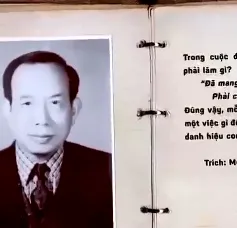 Trong cuộc đ
phải làm gì?
"Đã mang
Phải c
Đúng vậy, mỗ
một việc gì đ
danh hiệu con
Trích: M